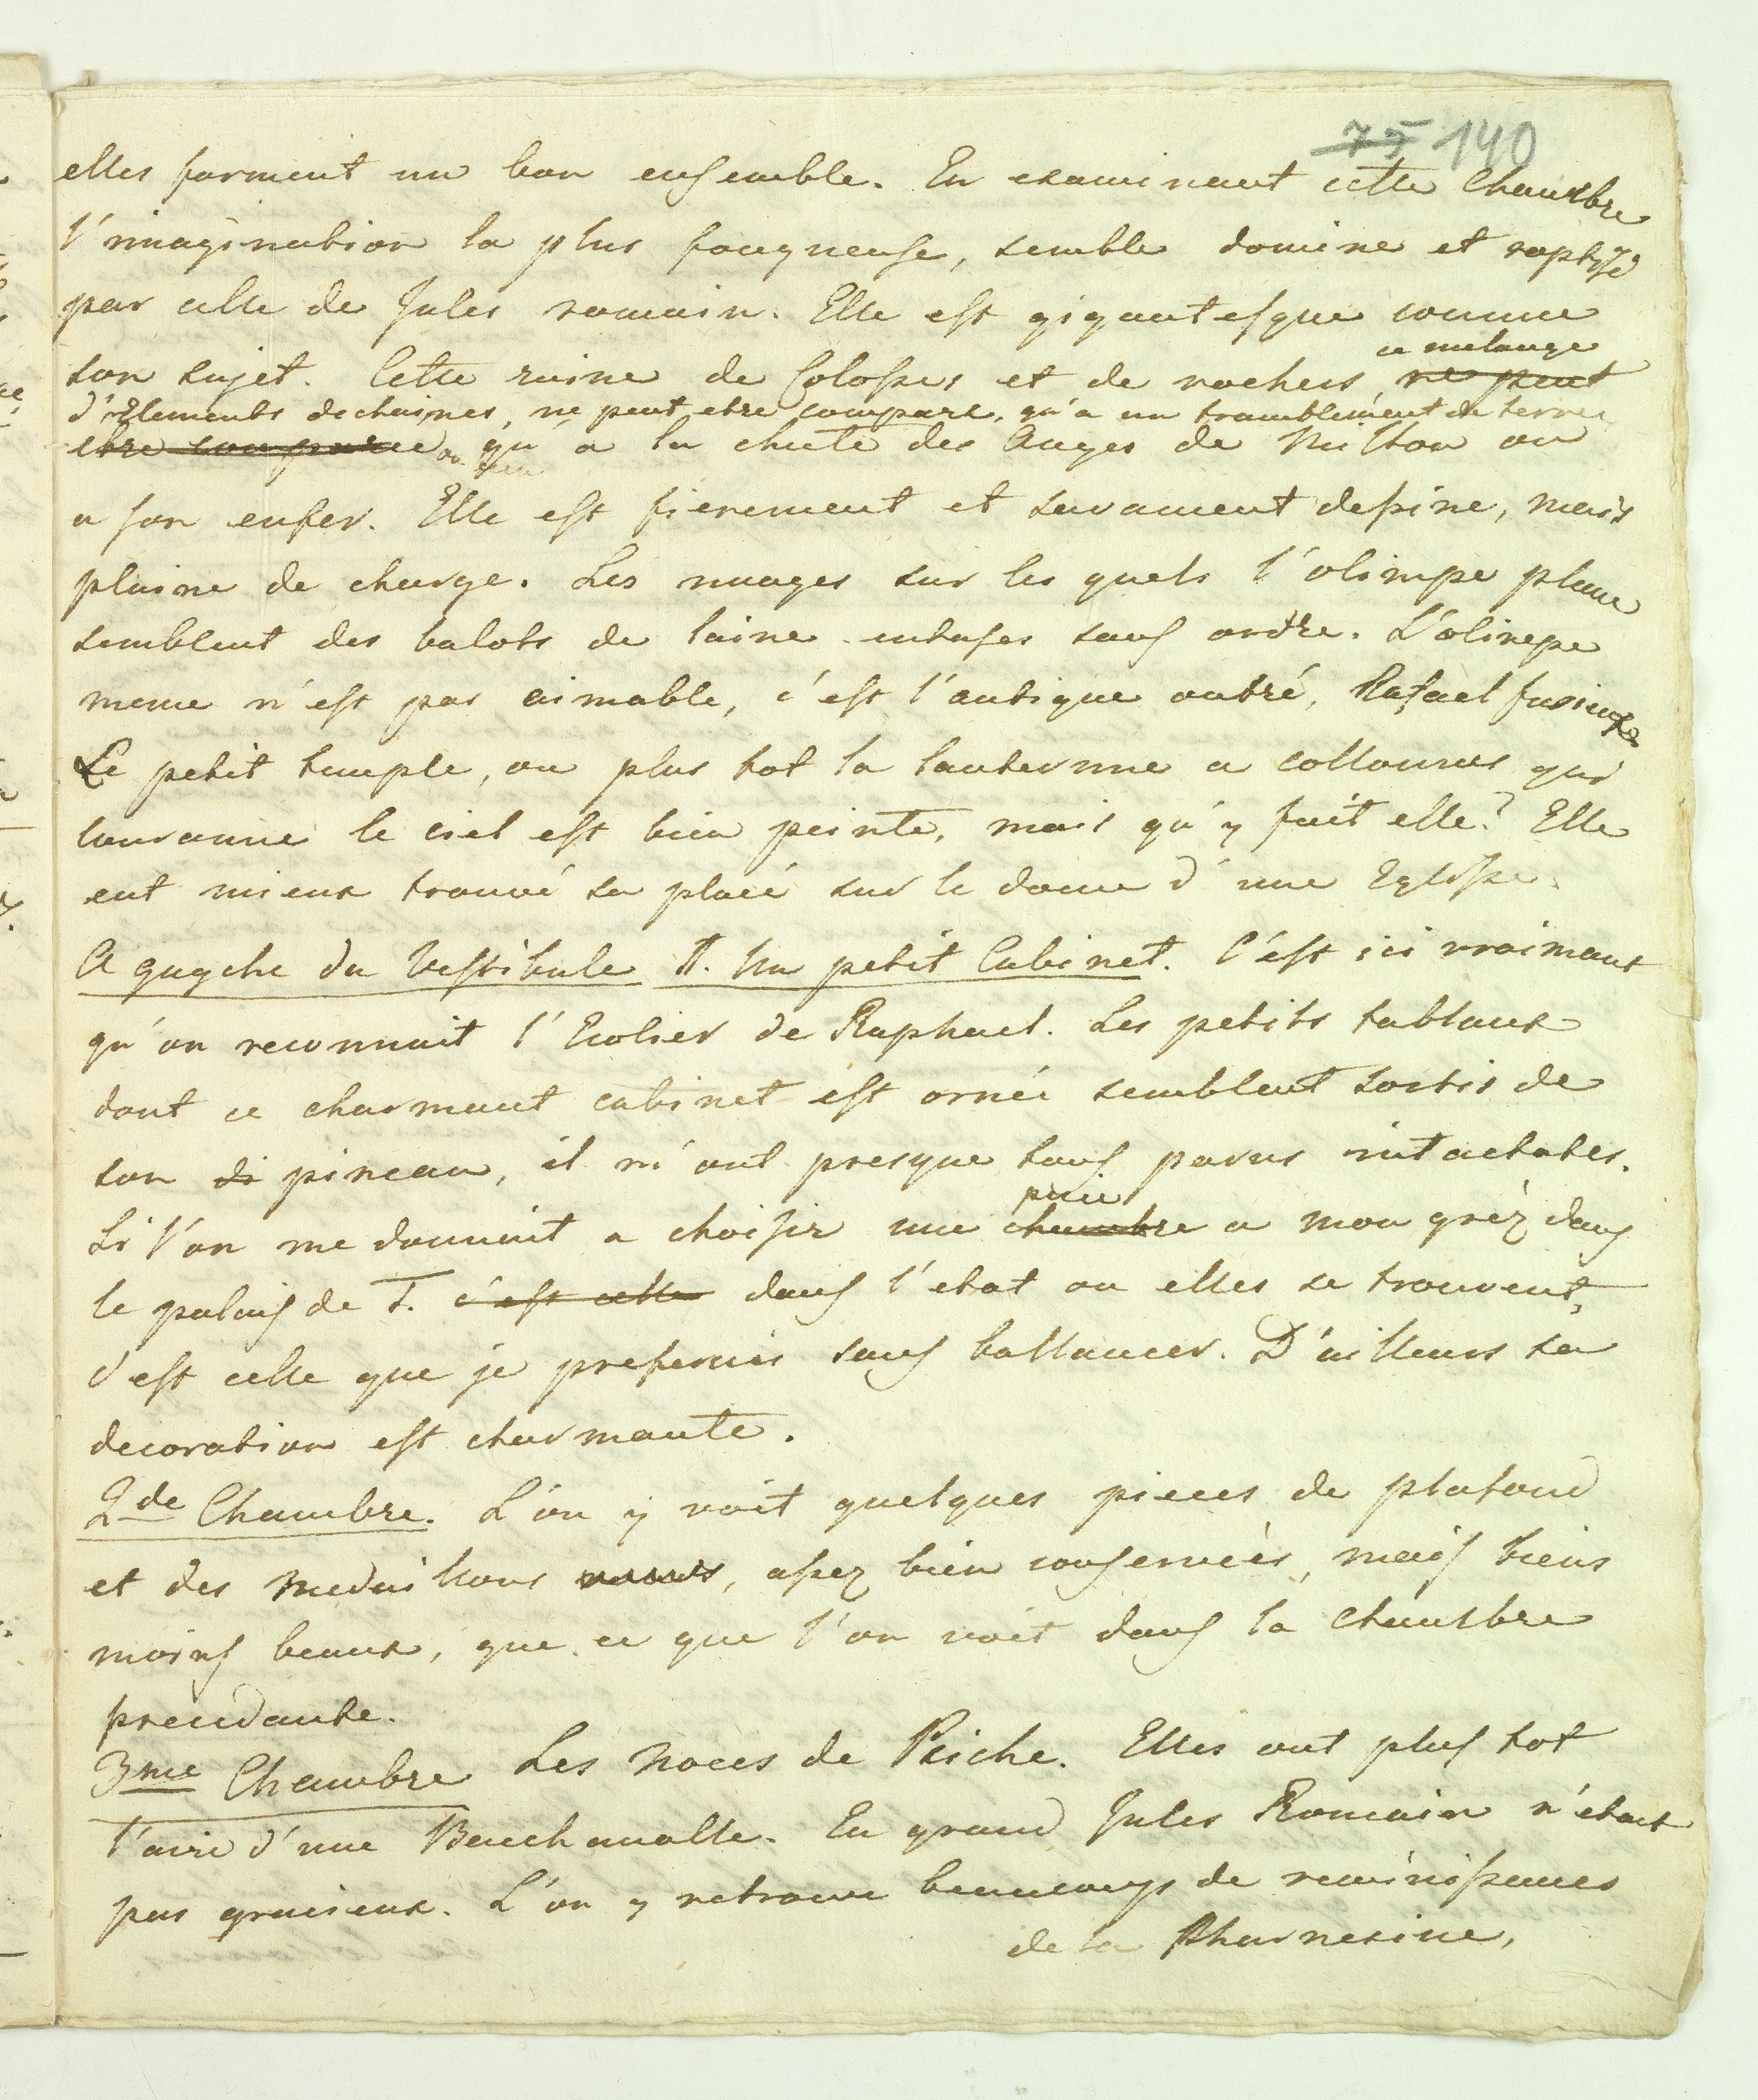 75 140
elles forment un bon ensemble. En examinant cette Chambre
l'imagination la plus fougueuse, semble domine et
par celle de Jules romain. Elle est gigantesque comme
son sujet. Cette ruine de Colosses et de rochers ne peut ce melange
d'Elements dechaines, ne peut etre compare, qu'a un tramblement de terre,
etre comparee ou bien qu'a la chute des Anges de Milton ou
a son enfer. Elle est fierement et savament dessine, mais
plaine de charge. Les nuages sur les quels l'olimpe plane
semblent des balots de laine entases sans ordre. L'olimpe
meme n'est pas aimable, c'est l'antique outré, Rafael furieux
Le petit temple, ou plus tot la lanternne a collonnes qui
couronne le ciel est bien peinte, mais qu'y fait elle? Elle
eut mieux trouvé sa placé sur le dome d'une Eglisse.
A gauche du Vestibule 1. Un petit Cabinet. C'est ici vraiment
qu'on reconnait l'Ecolier de Raphael. Les petits tableaux
dont ce charmant cabinet est orneé semblent sortis de
son pinceau, il m'ont presque tous parus intactates.
Si l'on me donnait a choisir une chambre piece a mon gréz dans
le palais de T. c'est celle dans l'etat ou elles se trouvent,
c'est celle que je preferais sans ballancer. D'ailleurs sa
decoration est charmante.
2de Chambre. L'on y voit quelques pieces de plafond
et des medaillons, assez bien conserveés, mais biens
moins beaux, que ce que l'on voit dans la Chambre
3me Chambre Les Noces de Psiche. Elles ont plus tot
l'aire d'une Bacchanalle. En grand Jules Romain n'etait
pas gracieux. L'on y retrouve beaucoups de reminissences
de la Pharnesine,